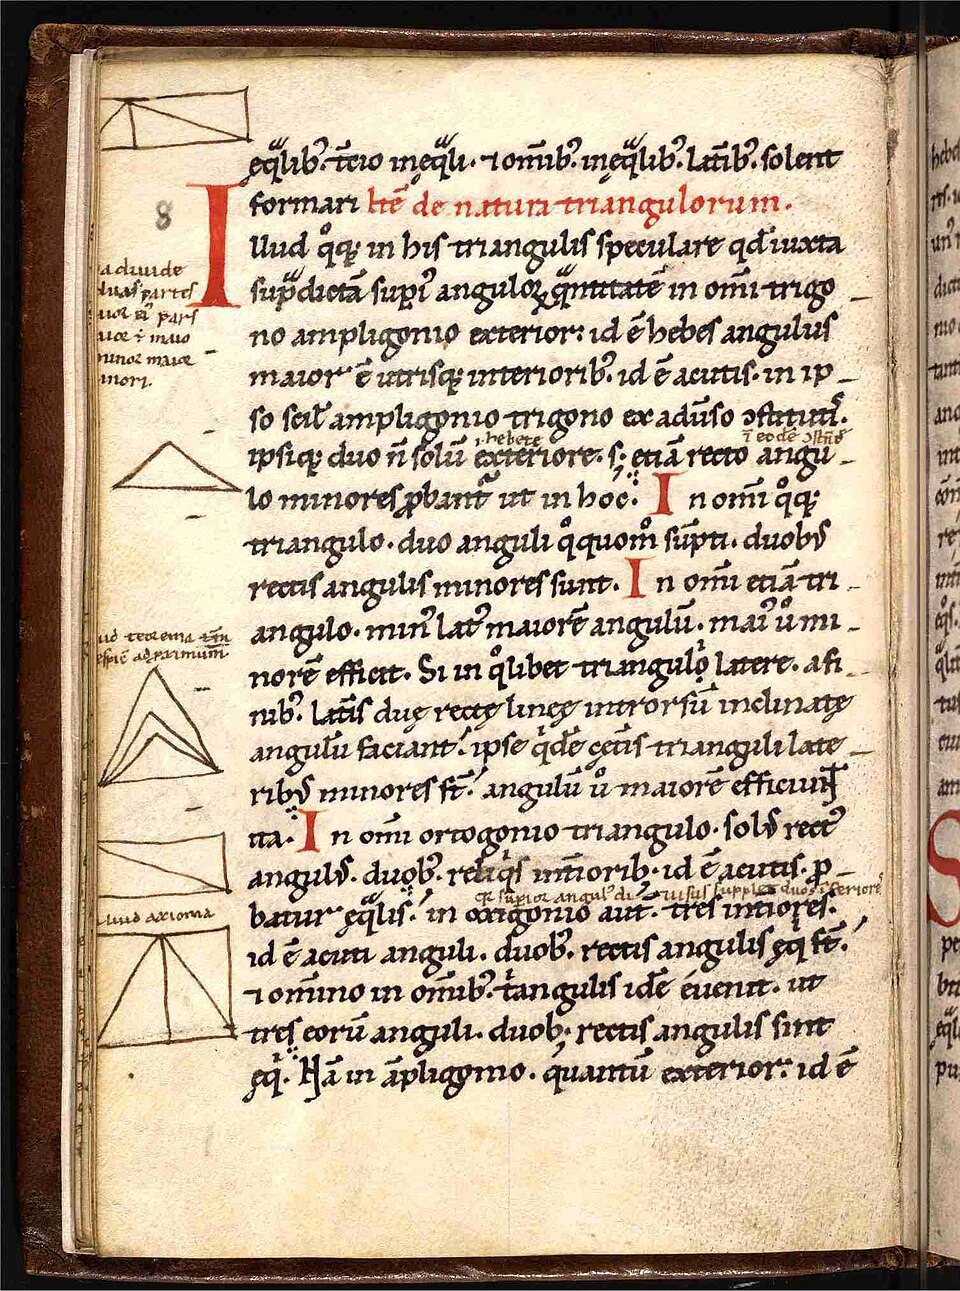 eq̃lib᷒. t̄cio ineq̃li. ⁊ om̄ib᷒. ineq̃lib᷒. lat̄ib᷒. solent
formari Itē de natura triangulorum.
Illud q̊q; in his triangulis speculare qd̄ iuxta
sup̃dictā sup̄i anguloꝝ q̃ntitatē in om̄i trigo
no ampligonio exterior: id ē hebes angulus
maior ē utrisq; interiorib᷒. id ē acutis. in ip
so scil̄ ampligonio trigono ex adūso
hebete
ipsiq; duo n̄ solū exteriore. s; etiā recto angu
lo minores ꝓbant᷑ ut in hoc. In om̄i q̊q;
triangulo. duo anguli q̊quom̊ sūpti. duob᷒
rectis angulis minores sunt. In om̄i etiā tri
angulo. min᷒ lat᷒ maiorē angulū. mai᷒ ů mi
norē efficit. Si in q̊libet triangulo latere. a fi
nib᷒. lat̄is duę rectę lineę introrsū inclinatę
angulū faciant. ipse q̇dē cet̄is trianguli late
rib᷒ minores st̄. angulū ů maiorē efficiunt
ita. In om̄i ortogonio triangulo. sol᷒ rect᷒
angul᷒. duob᷒. reliq̇s int̄iorib᷒. id ē acutis. ꝓ
batur ęq̃lis. in oxigonio aut̄. tres int̄iores.
id ē acuti anguli. duob᷒. rectis angulis ęq̃ st̄.
⁊ omnino in om̄ib᷒. t̊angulis idē euenit. ut
tres eorū anguli. duob; rectis angulis sint
ęq̃. Nā in āpligonio. quantū exterior: id ē
8
a diuide
duas partes
pars
maio
minor maior
inori.
ud teorema
ad primum
illud axioma